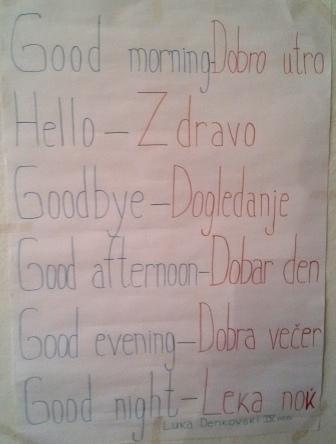 Good morning-Dobro utro
Hello-Zdravo
Goodbye-Dogledanje
Good afternoon-Dobar den
Good evening-Dobra večer
Good night-Leka noḱ
Luka Denkovski IX